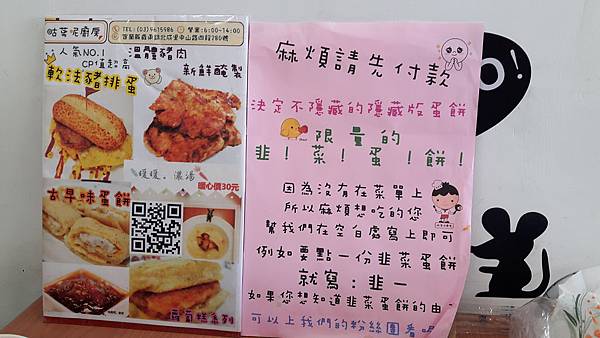 咕芙呢廚房
TEL:(03)9615986 營業:6:00-14:00
人氣NO.1
CP值超高
溫體豬肉
新鮮醃製
軟法豬排蛋
暖暖。濃湯
暖心價30元
古早味蛋餅
蘿蔔糕系列
麻煩請先付款
決定不隱藏的隱藏版蛋餅
限量的
韭!菜!蛋!餅!
因為沒有在菜單上
所以麻煩想吃的您
幫我們在空白處寫上即可
例如要點一份韭菜蛋餅
就寫:韭一
如果您想知道韭菜蛋餅的由
可以上我們的粉絲團看唷